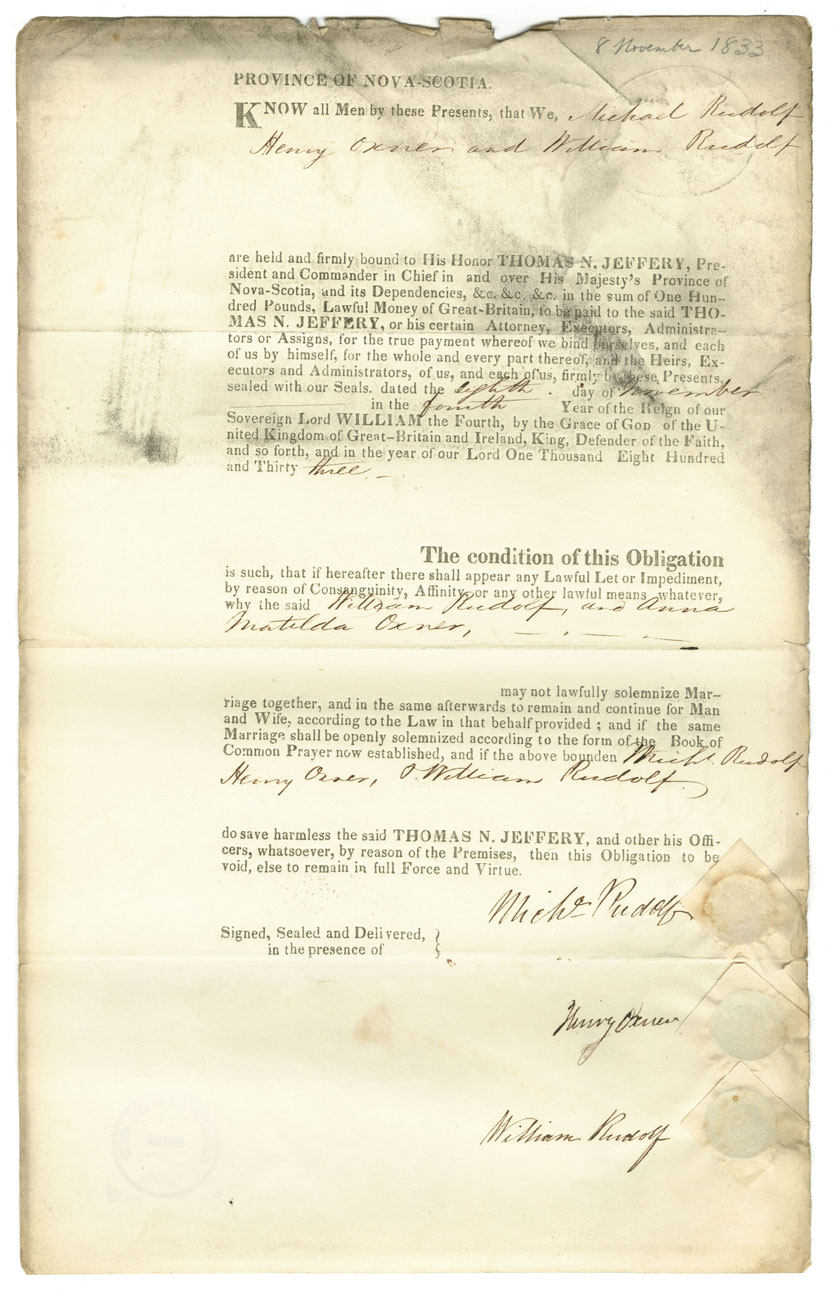 8 November 1833
PROVINCE OF NOVA-SCOTIA.
KNOW all Men by these Presents, that We, Michael Rudolf
Henry Oxner and William Rudolf
are held and firmly bound to His Honor THOMAS N. JEFFERY, Pre-
sident and Commander in Chief in and over His Majesty's Province of
Nova-Scotia, and its Dependencies, &c. &c. &c. in the sum of One Hun-
dred Pounds, Lawful Money of Great-Britain, to be paid to the said THO-
MAS N. JEFFERY, or his certain Attorney, Executors, Administra-
tors or Assigns, for the true payment whereof we bind ourselves, and each
of us by himself, for the whole and every part thereof, and the Heirs, Ex-
ecutors and Administrators, of us, and each of us, firmly by these Presents.
sealed with our Seals. dated the eighth . day of November
in the fourth Year of the Reign of our
Sovereign Lord WILLIAM the Fourth, by the Grace of GOD of the U-
nited Kingdom of Great-Britain and Ireland, King, Defender of the Faith,
and so forth, and in the year of our Lord One Thousand Eight Hundred
and Thirty three
The condition of this Obligation
is such, that if hereafter there shall appear any Lawful Let or Impediment,
by reason of Consanguinity, Affinity or any other lawful means whatever,
why the said William Rudolf, and Anna
Matilda Oxner,
may not lawfully solemnize Mar-
riage together, and in the same afterwards to remain and continue for Man
and Wife, according to the Law in that behalf provided ; and if the same
Marriage shall be openly solemnized according to the form of the Book of
Common Prayer now established, and if the above bounden Michl. Rudolf
Henry Oxner, & William Rudolf
do save harmless the said THOMAS N. JEFFERY, and other his Offi-
cers, whatsoever, by reason of the Premises, then this Obligation to be
void, else to remain in full Force and Virtue.
Michl Rudolf
Signed, Sealed and Delivered,
in the presence of
Henry Oxner
William Rudolf